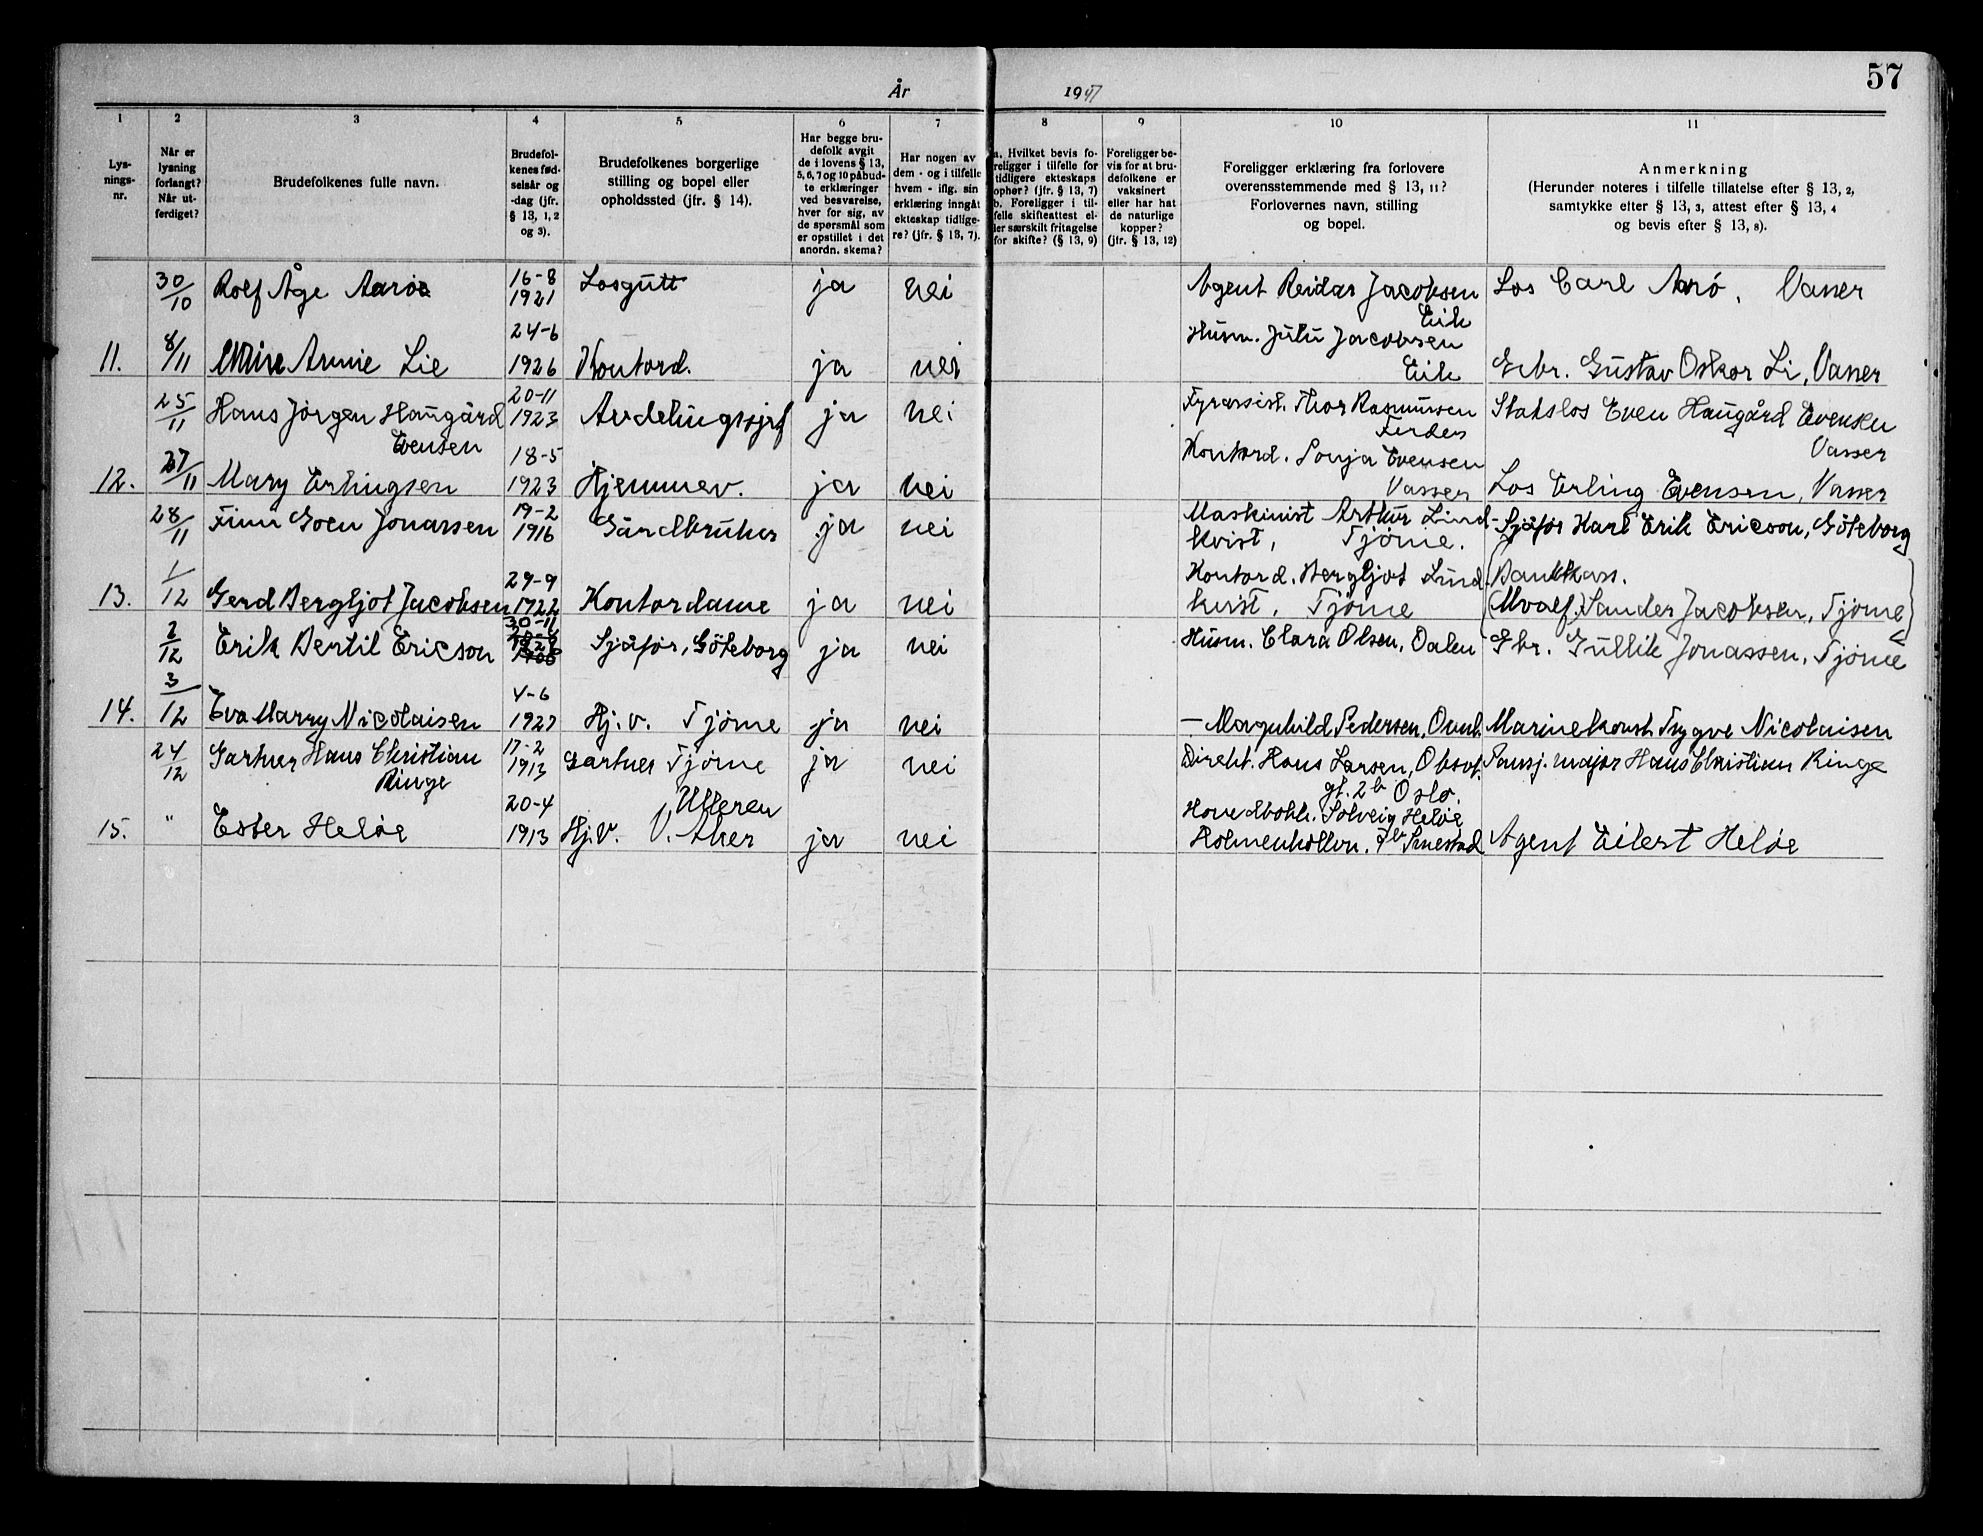 57
År 1947
1 2 3 4 5 6 7 8 9 10 11
Lys-
nings-
nr.
Når er
lysning
forlangt?
Når ut-
ferdiget?
Brudefolkenes fulle navn.
Brudefol-
kenes fød-
selsår og
-dag (jfr.
§ 13, 1, 2
og 3).
Brudefolkenes borgerlige
stilling og bopel eller
opholdssted (jfr. § 14).
Har begge bru-
defolk avgit
de i lovens § 13,
5, 6, 7 og 10 påbud-
te erklæringer
ved besvarelse,
hver for sig, av
de spørsmål som
er opstillet i det
anordn. skema?
Har nogen av
dem - og i tilfelle
hvem - iflg. sin
erklæring inngåt
ekteskap tidlige-
re? (jfr. § 13, 7).
a. Hvilket bevis fo-
religger i tilfelle for
tidligere ekteskaps
ophør? (jfr. § 13, 7)
b. Foreligger i til-
felle skifteattest el-
ler særskilt fritagelse
for skifte? (§ 13, 9)
Foreligger be-
vis for at bru-
defolkene er
vaksinert
eller har hat
de naturlige
kopper?
(jfr. § 13, 12)
Foreligger erklæring fra forlovere
overensstemmende med § 13, 11?
Forlovernes navn, stilling
og bopel.
Anmerkning
(Herunder noteres i tilfelle tillatelse efter § 13, 2,
samtykke efter § 13, 3, attest efter § 13, 4
og bevis efter § 13, 8).
30/10 Rolf Åge Aarøe 16-8 1921 Losgutt ja nei Agent Reidar Jacobsen Eik Los Carl Aarö, Vasser
11. 8/11 Annie Lie 24-6 1926 Kontord. ja nei Husm. Julu Jacobsen Eik Gbr. Gustav Oskar Li, Vasser
25/11 Hans Jörgen Haugård Evensen 20-11 1923 Avdelingssjef ja nei Fyrassist. Thor Rasmussen Færder Statslos Even Haugård Evensen Vasser
12. 27/11 Mary Erlingsen 18-5 1923 Hjemmev. ja nei Kontord. Sonja Evensen Vasser Los Erling Evensen, Vasser
28/11 Finn Goen Jonassen 19-2 1916 Gårdbruker ja nei Maskinist Arthur Lind-
kvist, Tjöme. Sjåför Karl Erik Ericson, Göteborg
13. 1/12 Gerd Bergljot Jacobsen 29-9 1922 Kontordame ja nei Kontord. Bergljot Lind-
kvist, Tjöme Bankkass.
(Hvalf.) Sander Jacobsen, Tjöme
2/12 Erik Bertil Ericson 30-11 Sjåför, Göteborg ja nei Husm. Clara Olsen, Dalen Gbr. Gullik Jonassen, Tjöme
14. 3/12 Eva Marry Nicolaisen 4-6 1927 Hj.v. Tjöme ja nei — Magnhild Pedersen, Marinekonst. Trygve Nicolaisen
24/12 Gartner Hans Christian Ringe 17-2 1913 Gartner Tjöme ja nei Direkt. Hans Larsen, Obsvt.
gt. 2b Oslo. Pensj. major Hans Christian Ringe
15. " Ester Helöe 20-4 1913 Hj.V. Ulleren V. Aker ja nei Hovedbokh. Solveig Helöe
Holmenkollvn. Smestad Agent Eilert Helöe